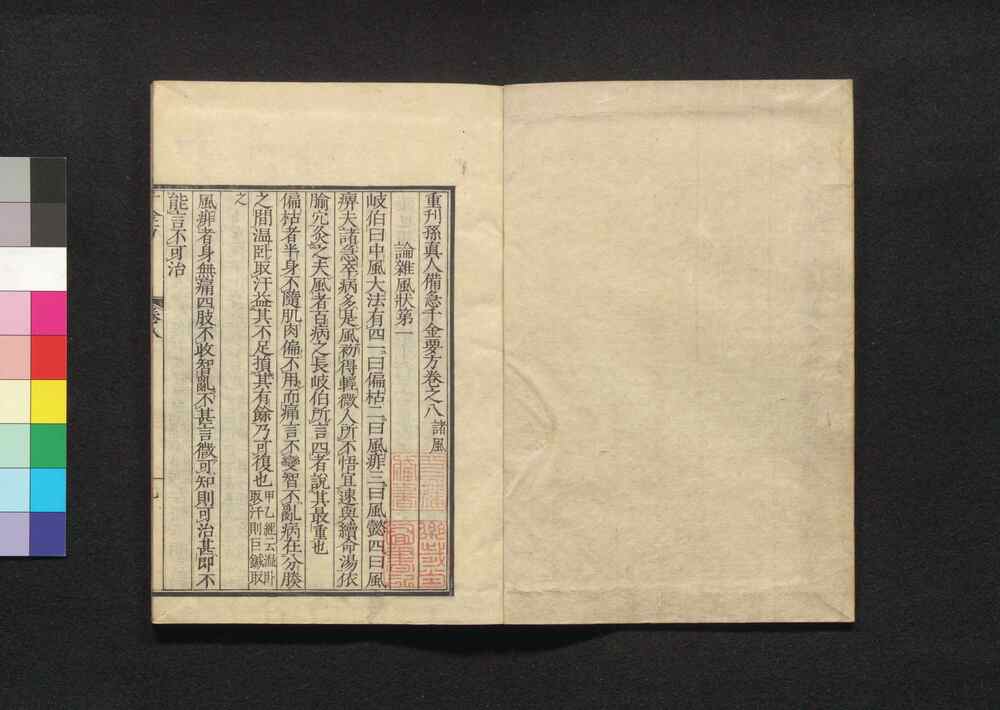 重刋孫真人備急千金要方卷之八 諸風
論雜風狀第一
岐伯曰中風大法有四一曰偏枯二曰風痱三曰風懿四曰風
痹夫諸急卒病多是風初得輕微人所不悟宜速與續命湯依
腧穴灸之夫風者百病之長岐伯所言四者說其最重也
偏枯者半身不隨肌肉偏不用而痛言不變智不亂病在分腠
之間温卧取汗益其不足損其有餘乃可復也 甲乙經云温卧
取汗則巨鍼取
之
風痱者身無痛四肢不收智亂不甚言微可知則可治甚即不
能言不可治